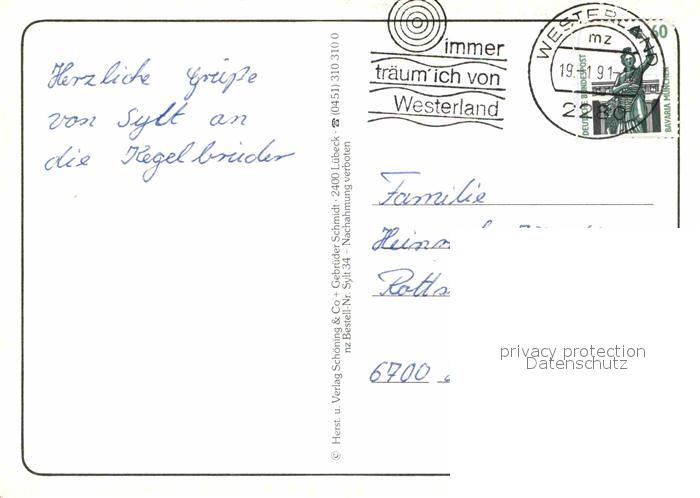 Herzliche Grüße
von Sylt an
die Kegelbrüder
© Herst. u. Verlag Schöning & Co + Gebrüder Schmidt · 2400 Lübeck · ☎ (0451) 310 310 0
nz Bestell-Nr. Sylt 34 – Nachahmung verboten
immer
träum' ich von
Westerland
WESTERLAND
mz
19.-1.91-
2280
60
DEUTSCHE BUNDESPOST
BAVARIA MÜNCHEN
Familie
6700
privacy protection
Datenschutz